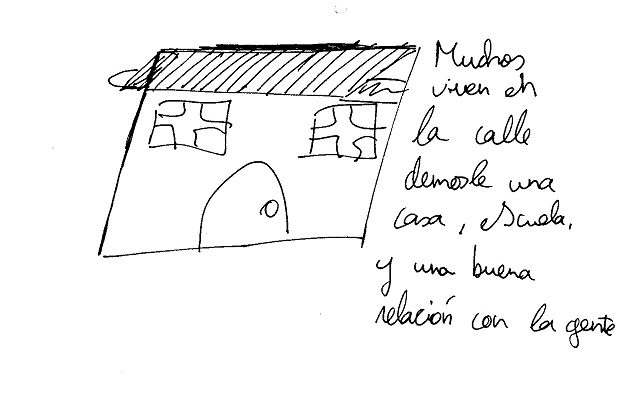 Muchos
viven en
la calle
demosle una
casa, escuela,
y una buena
relación con la gente